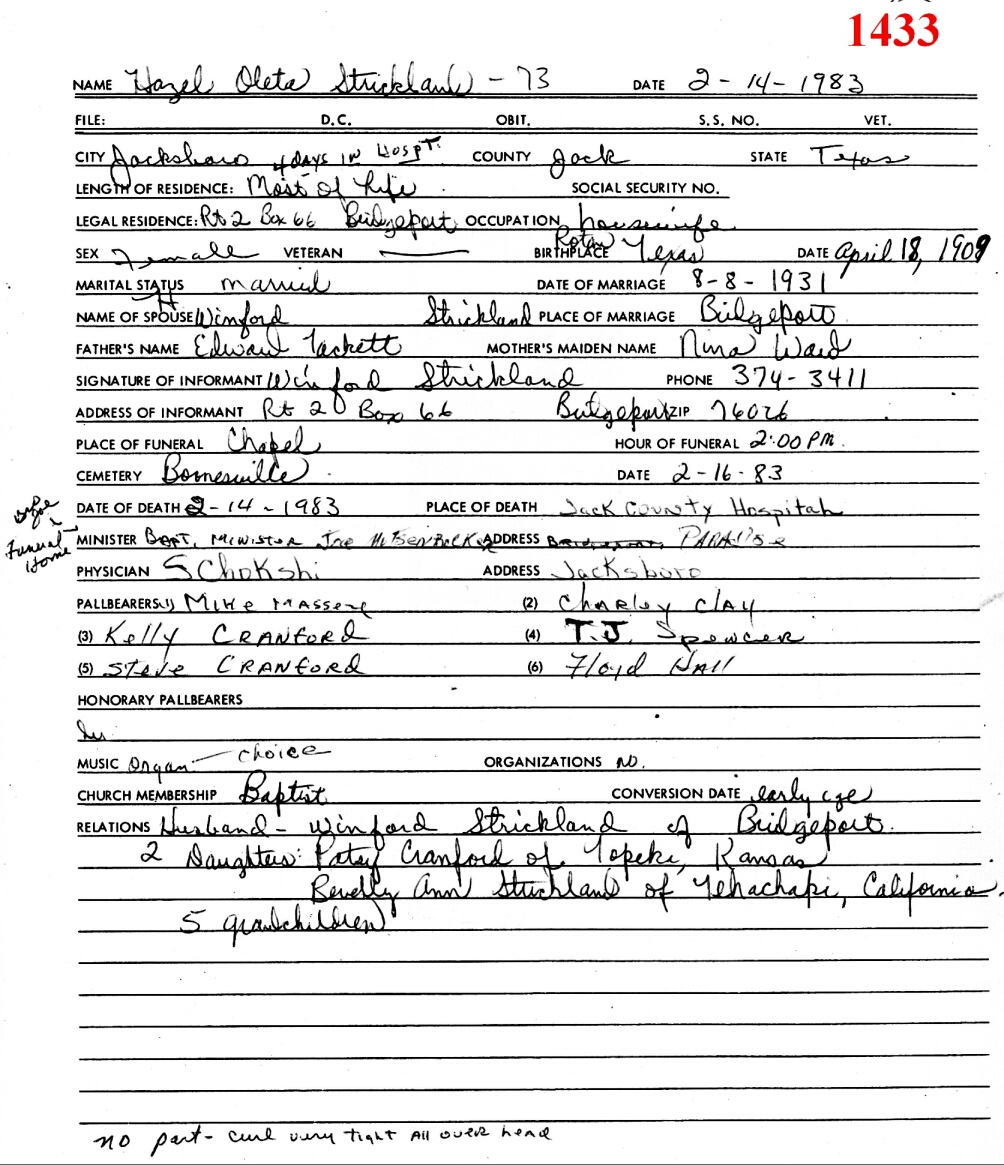 1433
NAME Hazel Oleta Strickland - 73 DATE 2-14-1983
FILE: D.C. OBIT. S.S. NO. VET.
CITY Jacksboro 4 days in Hospt. COUNTY Jack STATE Texas
LENGTH OF RESIDENCE: Most of Life SOCIAL SECURITY NO.
LEGAL RESIDENCE: Rt 2 Box 66 Bridgeport OCCUPATION housewife
SEX Female VETERAN — BIRTHPLACE Rotan Texas DATE April 18, 1909
MARITAL STATUS married DATE OF MARRIAGE 8-8-1931
NAME OF SPOUSE Winford Strickland PLACE OF MARRIAGE Bridgeport
FATHER'S NAME Edward Tackett MOTHER'S MAIDEN NAME Nina Ward
SIGNATURE OF INFORMANT Winford Strickland PHONE 374-3411
ADDRESS OF INFORMANT Rt 2 Box 66 Bridgeport ZIP 76026
PLACE OF FUNERAL Chapel HOUR OF FUNERAL 2:00 PM.
CEMETERY Boonesville DATE 2-16-83
DATE OF DEATH 2-14-1983 PLACE OF DEATH Jack County Hospital
Funeral Home
MINISTER Bapt. Minister Joe ADDRESS Paradise
PHYSICIAN S Chokshi ADDRESS Jacksboro
PALLBEARERS (1) Mike Massene (2) Charley Clay
(3) Kelly Cranford (4) T.J. Spencer
(5) Steve Cranford (6) Floyd Hall
HONORARY PALLBEARERS
MUSIC Organ - choice ORGANIZATIONS no.
CHURCH MEMBERSHIP Baptist CONVERSION DATE early age
RELATIONS Husband - Winford Strickland of Bridgeport.
2 Daughters: Patsy Cranford of Topeka, Kansas
Beverly Ann Strickland of Tehachapi, California.
5 grandchildren
no part - curl very tight all over head